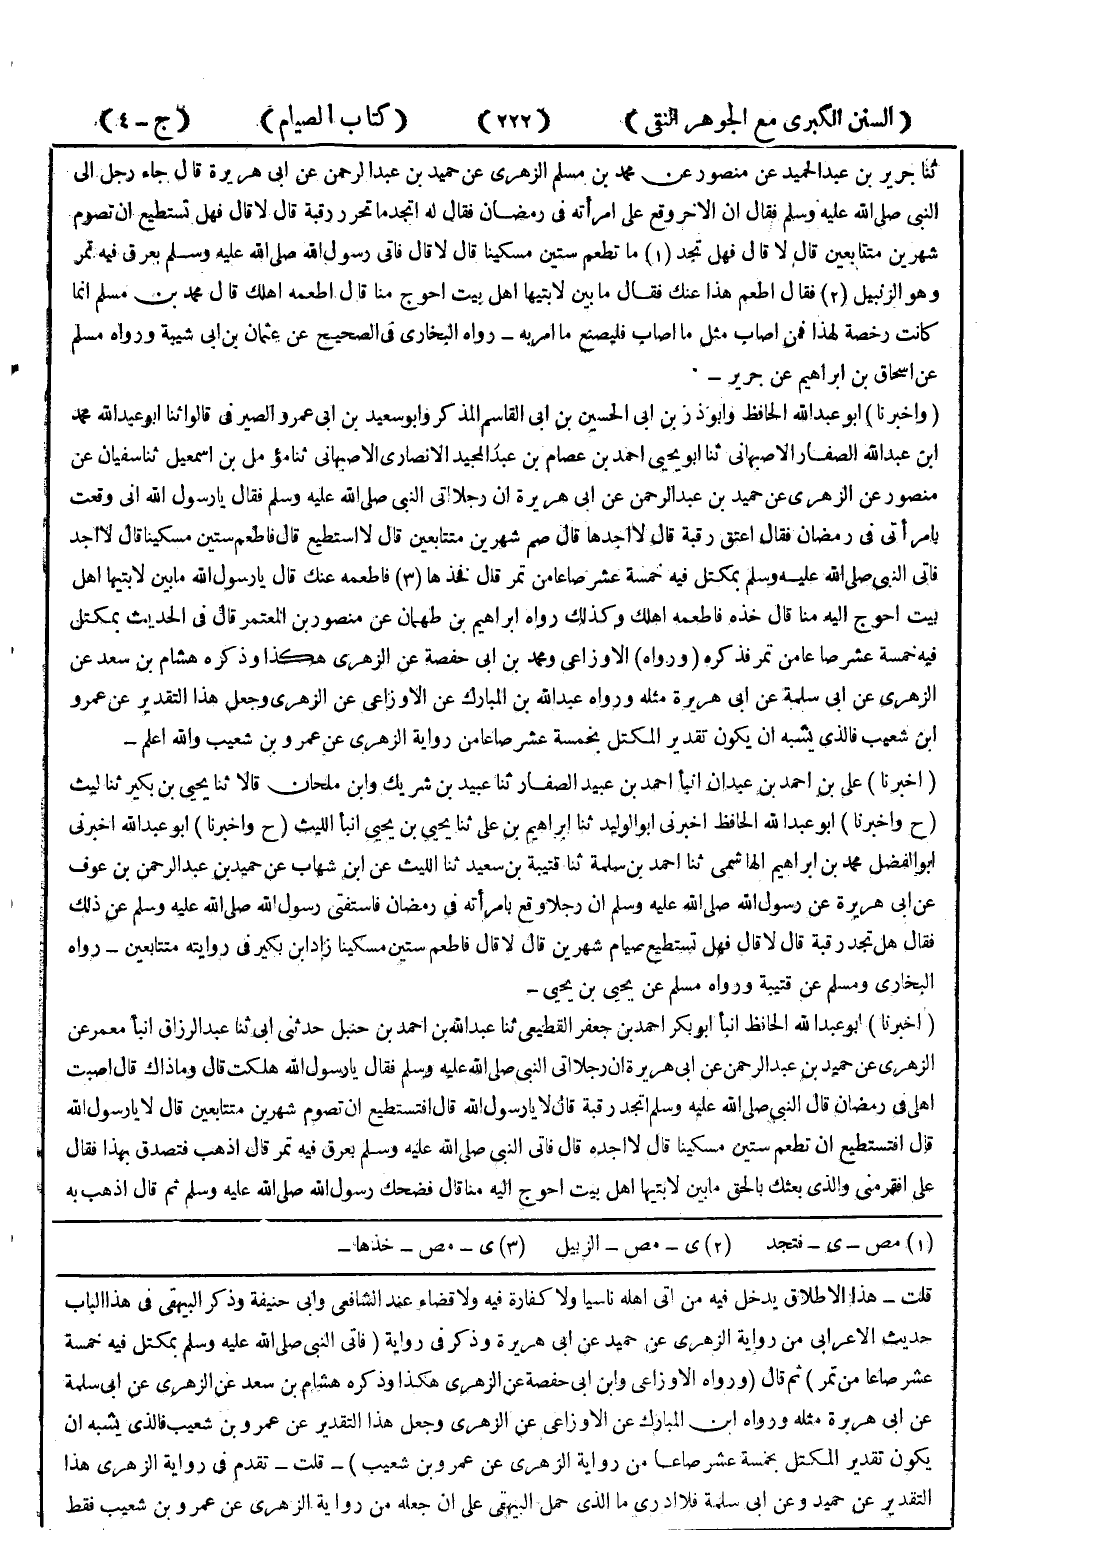 ( السنن الكبرى مع الجوهر النقى ) ( ٢٢٢ ) ( كتاب الصيام ) ( ج - ٤ )
ثنا جرير بن عبدالحميد عن منصور عن محمد بن مسلم الزهرى عن حميد بن عبدالرحمن عن ابى هريرة قال جاء رجل الى
النبى صلى الله عليه وسلم فقال ان الاخر وقع على امرأته فى رمضان فقال له اتجد ما تحرر رقبة قال لا قال فهل تستطيع ان تصوم
شهرين متتابعين قال لا قال فهل تجد (١) ما تطعم ستين مسكينا قال لا قال فاتى رسول الله صلى الله عليه وسلم بعرق فيه تمر
وهو الزنبيل (٢) فقال اطعم هذا عنك فقال ما بين لابتيها اهل بيت احوج منا قال اطعمه اهلك قال محمد بن مسلم انما
كانت رخصة لهذا فمن اصاب مثل ما اصاب فليصنع ما امر به - رواه البخارى فى الصحيح عن عثمان بن ابى شيبة ورواه مسلم
عن اسحاق بن ابراهيم عن جرير -
( واخبرنا ) ابو عبدالله الحافظ وابو ذر بن ابى الحسين بن ابى القاسم المذكر وابو سعيد بن ابى عمرو الصيرفى قالوا ثنا ابو عبدالله محمد
ابن عبدالله الصفار الاصبهانى ثنا ابو يحيى احمد بن عصام بن عبدالمجيد الانصارى الاصبهانى ثنا مؤمل بن اسمعيل ثنا سفيان عن
منصور عن الزهرى عن حميد بن عبدالرحمن عن ابى هريرة ان رجلا اتى النبى صلى الله عليه وسلم فقال يا رسول الله انى وقعت
بامرأتى فى رمضان فقال اعتق رقبة قال لا اجدها قال صم شهرين متتابعين قال لا استطيع قال فاطعم ستين مسكينا قال لا اجد
فاتى النبى صلى الله عليه وسلم بمكتل فيه خمسة عشر صاعا من تمر قال فخذها (٣) فاطعمه عنك قال يا رسول الله ما بين لابتيها اهل
بيت احوج اليه منا قال خذه فاطعمه اهلك وكذلك رواه ابراهيم بن طهمان عن منصور بن المعتمر قال فى الحديث بمكتل
فيه خمسة عشر صاعا من تمر فذكره ( ورواه ) الاوزاعى ومحمد بن ابى حفصة عن الزهرى هكذا وذكره هشام بن سعد عن
الزهرى عن ابى سلمة عن ابى هريرة مثله ورواه عبدالله بن المبارك عن الاوزاعى عن الزهرى وجعل هذا التقدير عن عمرو
ابن شعيب فالذى يشبه ان يكون تقدير المكتل بخمسة عشر صاعا من رواية الزهرى عن عمرو بن شعيب والله اعلم -
( اخبرنا ) على بن احمد بن عبدان انبأ احمد بن عبيد الصفار ثنا عبيد بن شريك وابن ملحان قالا ثنا يحيى بن بكير ثنا ليث
( ح واخبرنا ) ابو عبدالله الحافظ اخبرنى ابو الوليد ثنا ابراهيم بن على ثنا يحيى بن يحيى انبأ الليث ( ح واخبرنا ) ابو عبدالله اخبرنى
ابو الفضل محمد بن ابراهيم الهاشمى ثنا احمد بن سلمة ثنا قتيبة بن سعيد ثنا الليث عن ابن شهاب عن حميد بن عبدالرحمن بن عوف
عن ابى هريرة عن رسول الله صلى الله عليه وسلم ان رجلا وقع بامرأته فى رمضان فاستفتى رسول الله صلى الله عليه وسلم عن ذلك
فقال هل تجد رقبة قال لا قال فهل تستطيع صيام شهرين قال لا قال فاطعم ستين مسكينا زاد ابن بكير فى روايته متتابعين - رواه
البخارى ومسلم عن قتيبة ورواه مسلم عن يحيى بن يحيى -
( اخبرنا ) ابو عبدالله الحافظ انبأ ابو بكر احمد بن جعفر القطيعى ثنا عبدالله بن احمد بن حنبل حدثنى ابى ثنا عبدالرزاق انبأ معمر عن
الزهرى عن حميد بن عبدالرحمن عن ابى هريرة ان رجلا اتى النبى صلى الله عليه وسلم فقال يا رسول الله هلكت قال وماذاك قال اصبت
اهلى فى رمضان قال النبى صلى الله عليه وسلم اتجد رقبة قال لا يا رسول الله قال افتستطيع ان تصوم شهرين متتابعين قال لا يا رسول الله
قال افتستطيع ان تطعم ستين مسكينا قال لا اجده قال فاتى النبى صلى الله عليه وسلم بعرق فيه تمر قال اذهب فتصدق بهذا فقال
على افقر منى والذى بعثك بالحق ما بين لابتيها اهل بيت احوج اليه منا قال فضحك رسول الله صلى الله عليه وسلم ثم قال اذهب به
(١) مص - ى - فتجد (٢) ى - مص - الزبيل (٣) ى - مص - خذها -
قلت - هذا الاطلاق يدخل فيه من اتى اهله ناسيا ولا كفارة فيه ولا قضاء عند الشافعى وابى حنيفة وذكر البيهقى فى هذا الباب
حديث الاعرابى من رواية الزهرى عن حميد عن ابى هريرة وذكر فى رواية ( فاتى النبى صلى الله عليه وسلم بمكتل فيه خمسة
عشر صاعا من تمر ) ثم قال ( ورواه الاوزاعى وابن ابى حفصة عن الزهرى هكذا وذكره هشام بن سعد عن الزهرى عن ابى سلمة
عن ابى هريرة مثله ورواه ابن المبارك عن الاوزاعى عن الزهرى وجعل هذا التقدير عن عمرو بن شعيب فالذى يشبه ان
يكون تقدير المكتل بخمسة عشر صاعا من رواية الزهرى عن عمرو بن شعيب ) - قلت - تقدم فى رواية الزهرى هذا
التقدير عن حميد وعن ابى سلمة فلا ادرى ما الذى حمل البيهقى على ان جعله من رواية الزهرى عن عمرو بن شعيب فقط